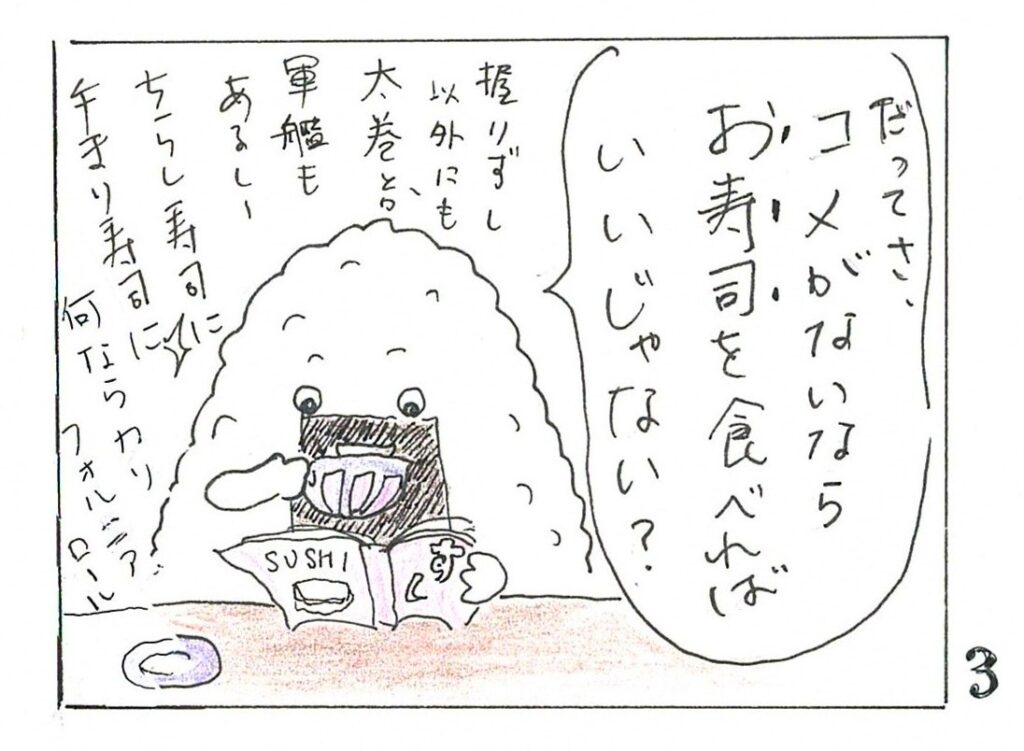 だってさ、
コメがないなら
お寿司を食べれば
いいじゃない?
握りずし
以外にも
太巻と、
軍艦も
あるしー
ちらし寿司に
手まり寿司に
何ならカリ
フォルニア
ロール
SUSHI
すし
3